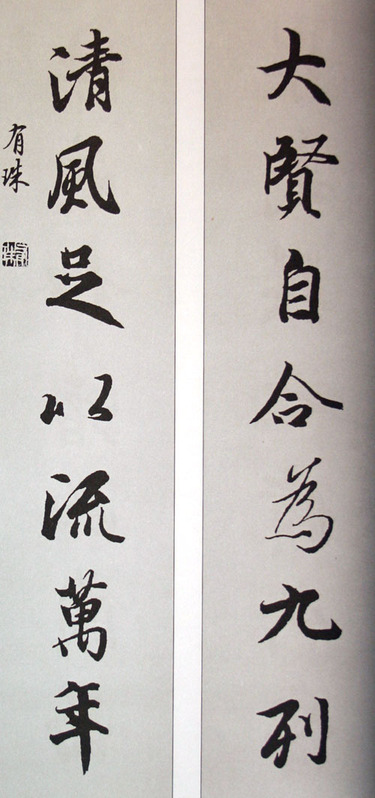 大賢自合為九列
清風足以流萬年
有珠